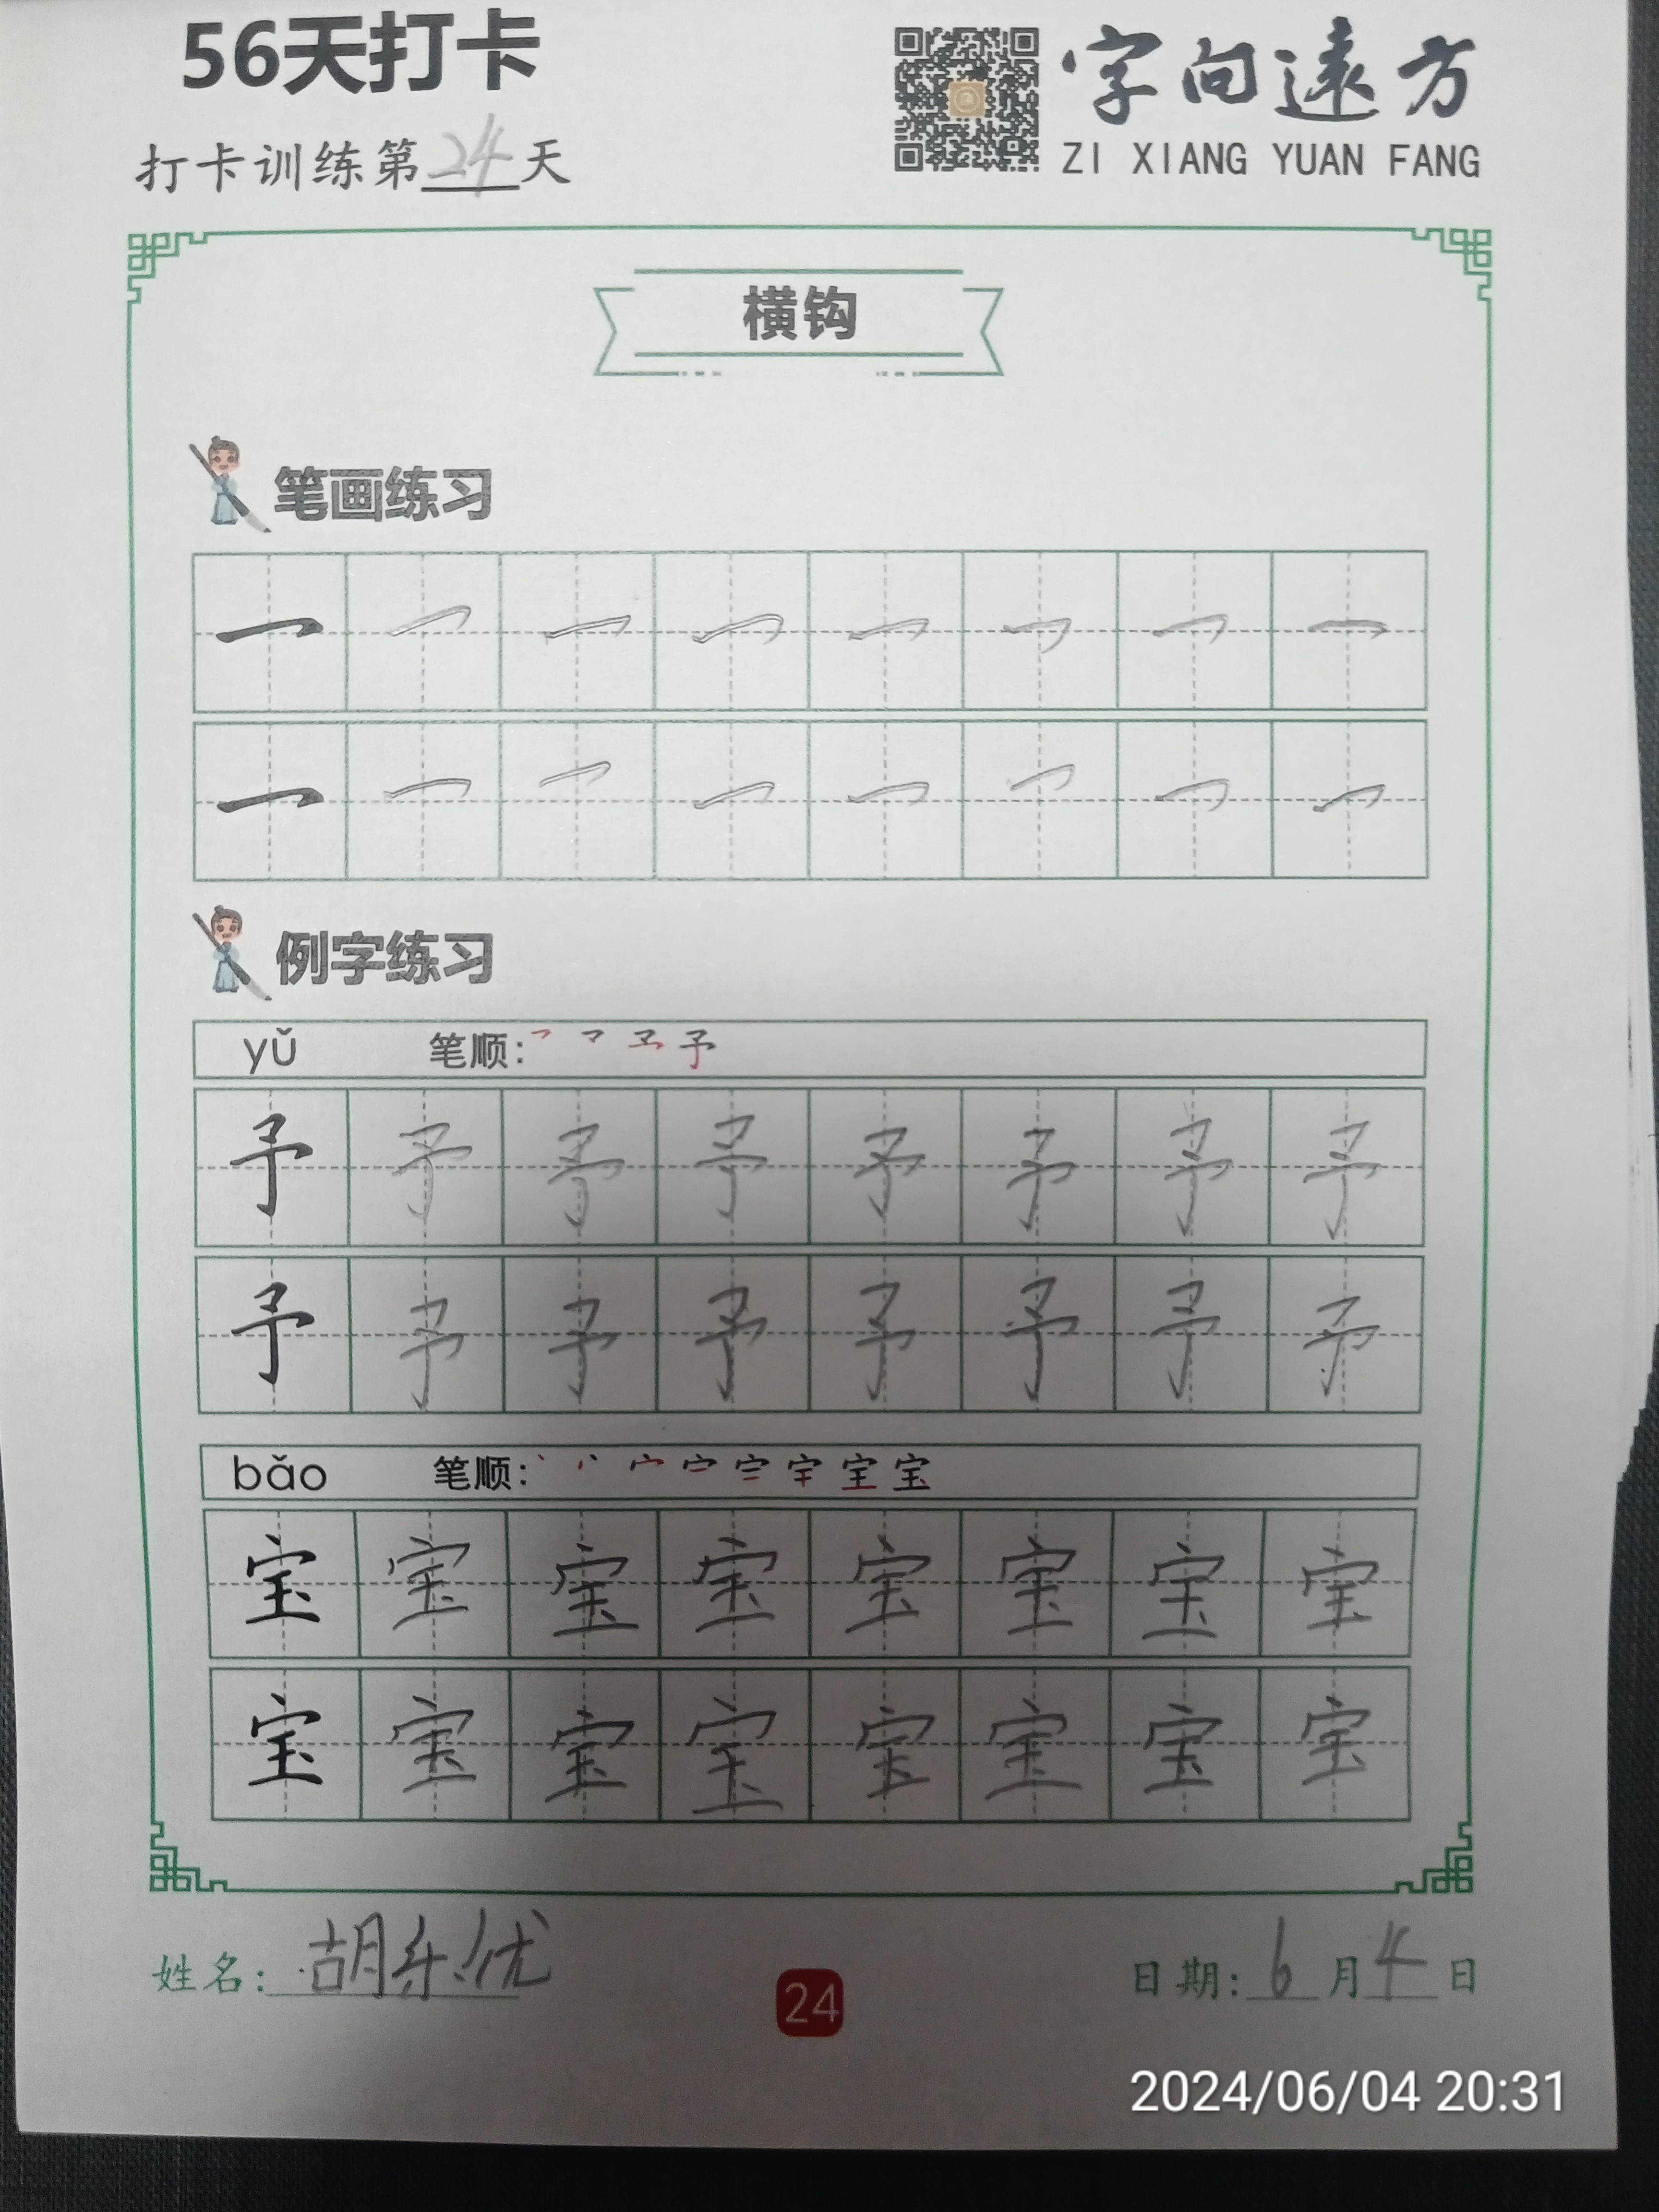 56天打卡
字向遠方
ZI XIANG YUAN FANG
打卡训练第24天
横钩
笔画练习
例字练习
yǔ 笔顺: 予
予 予 予 予 予 予 予 予
予 予 予 予 予 予 予 予
bǎo 笔顺: 宝
宝 宝 宝 宝 宝 宝 宝 宝
宝 宝 宝 宝 宝 宝 宝 宝
姓名: 胡乐优
24
日期: 6月4日
2024/06/04 20:31